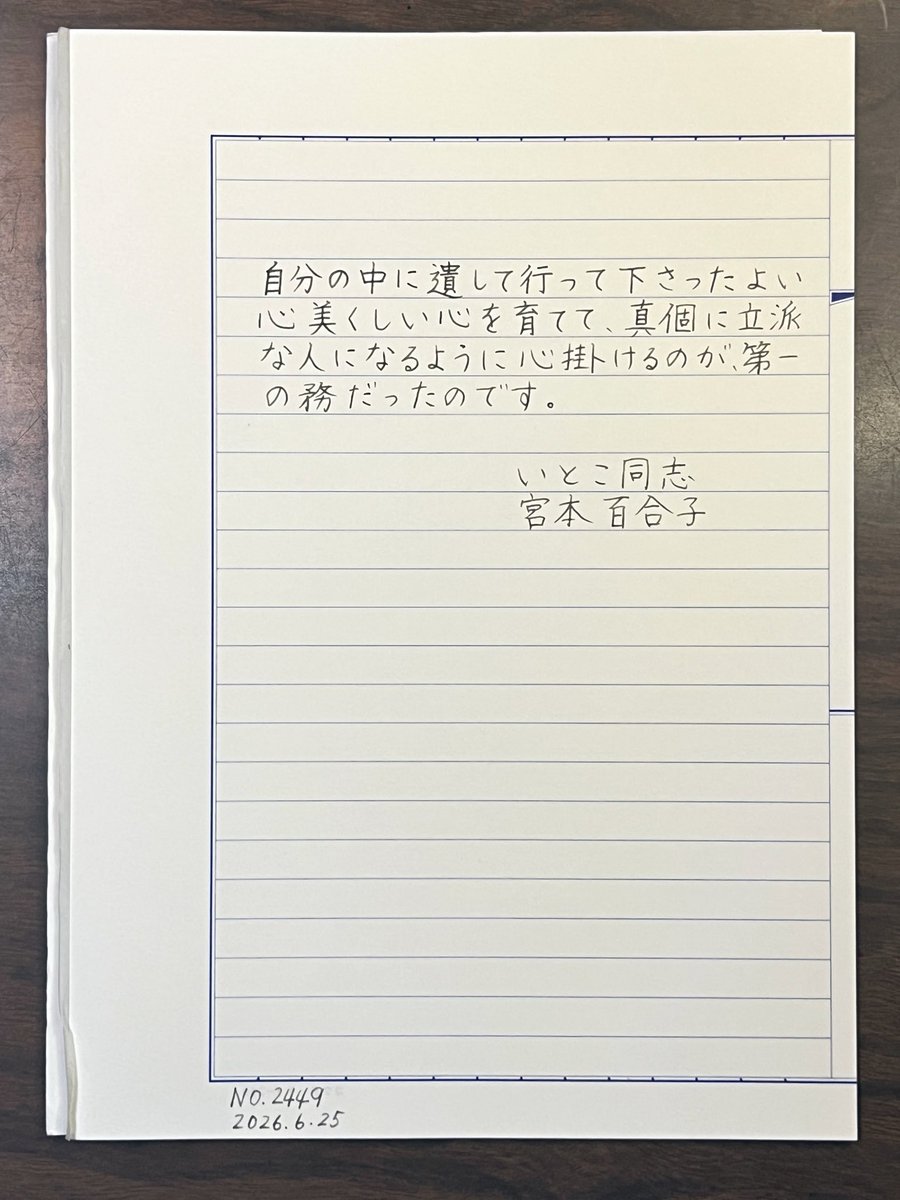 自分の中に遺して行って下さったよい
心美くしい心を育てて、真個に立派
な人になるように心掛けるのが、第一
の務だったのです。
いとこ同志
宮本百合子
NO.2449
2026.6.25